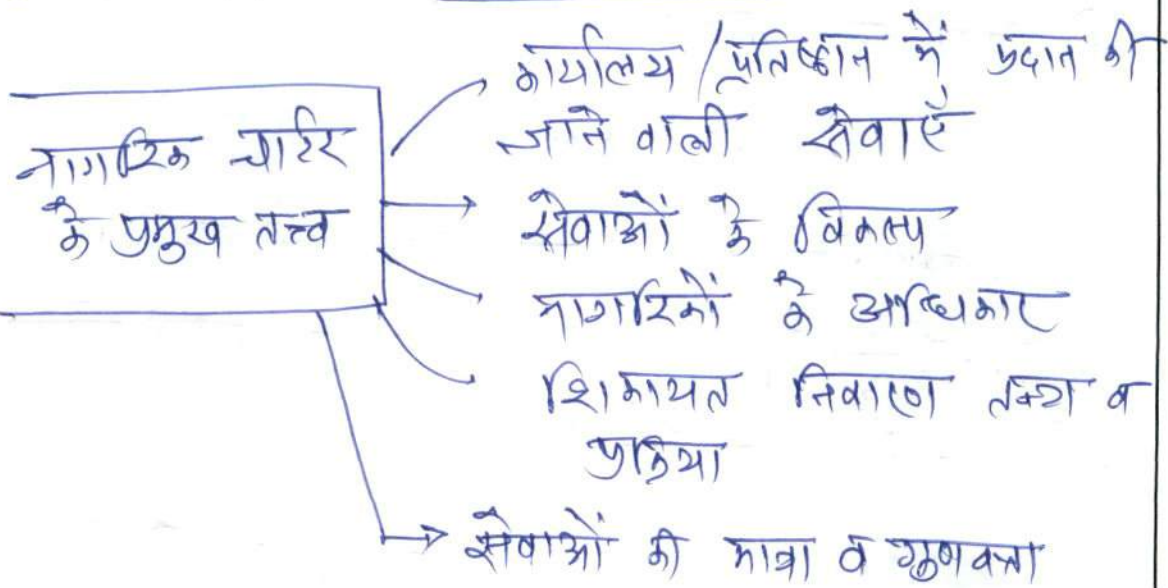 नागरिक चार्टर
के प्रमुख तत्त्व
कार्यालय / प्रतिष्ठान में प्रदान की
जाने वाली सेवाएँ
सेवाओं के विकल्प
नागरिकों के अधिकार
शिकायत निवारण तन्त्र व
प्रक्रिया
सेवाओं की मात्रा व गुणवत्ता